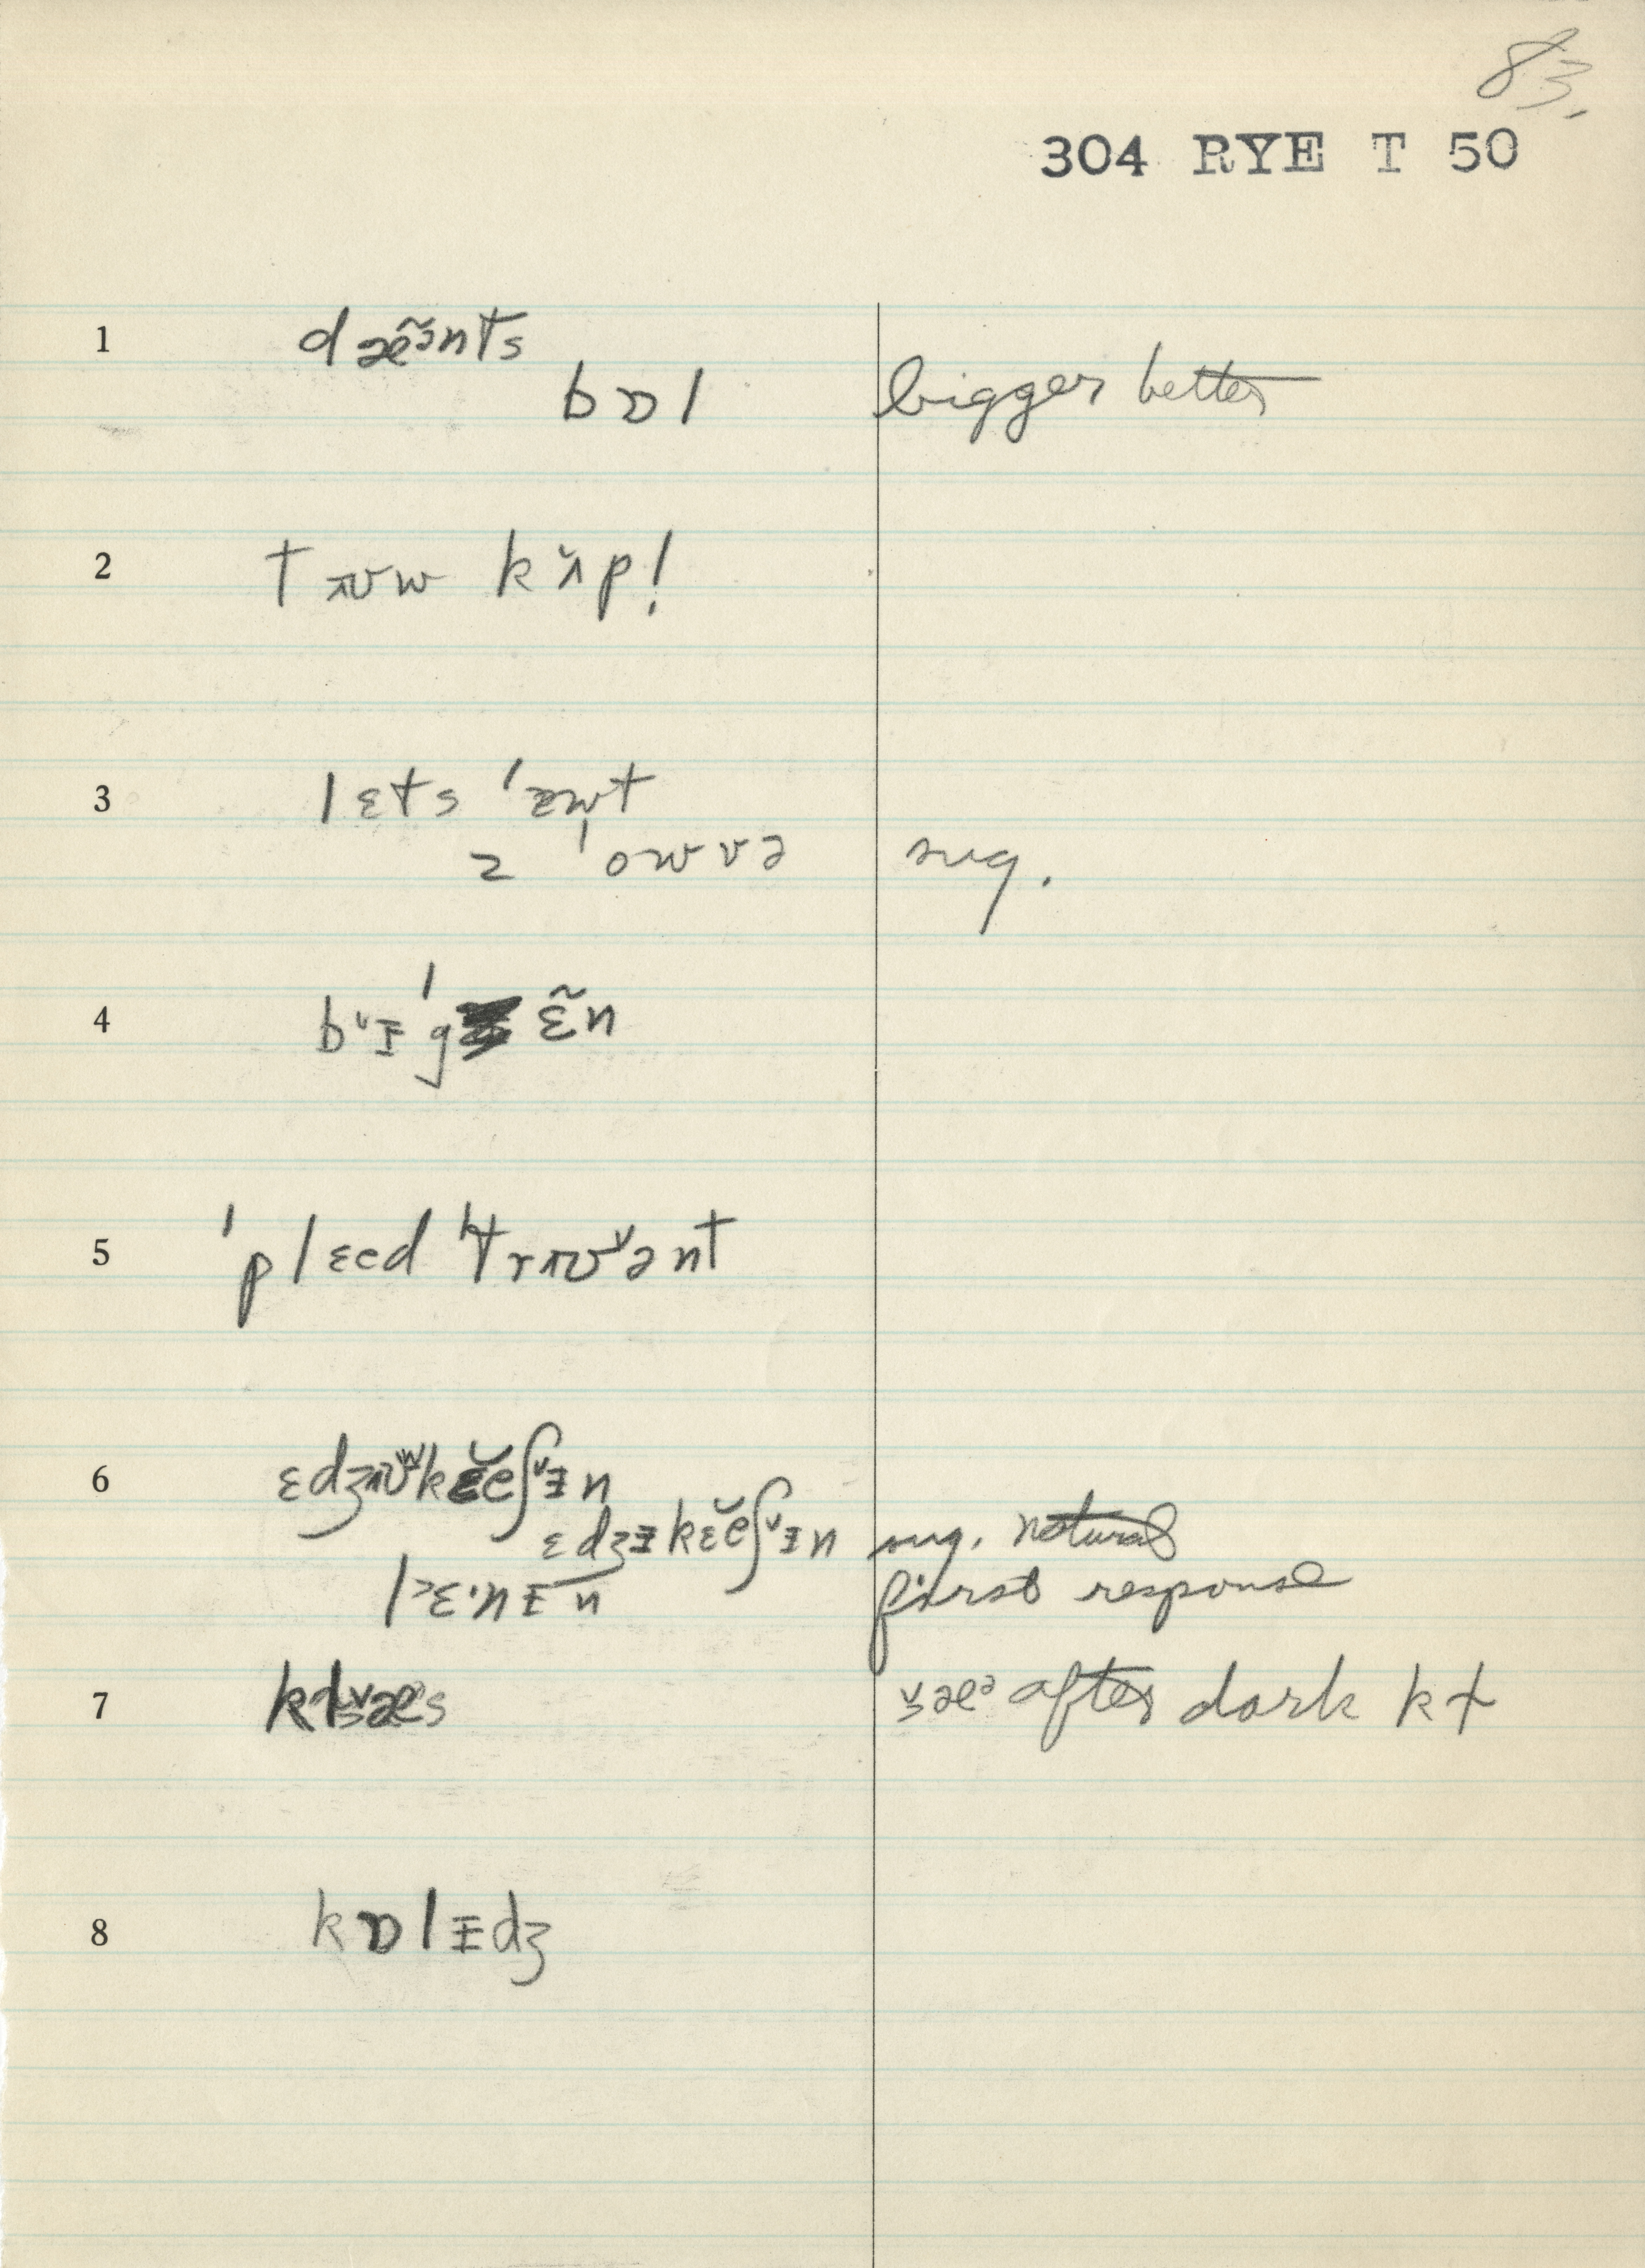 83.
304 RYE T 50
1 dæ̃ə̃nts
bɒl bigger better
2 tʌʊw kʌ̆p!
3 lɛts ˈæwt
z ˈowvə sug.
4 bᵛɪˈg ɛ̃n
5 ˈplɛed ˈtrʌʊᵛənt
6 ɛdʒʌʊʷkɛ̆eʃᵛɪn
ɛdʒɪkɛ̆eʃᵛɪn sug. natural
l˃ɛ·nɪn first response
7 klæs after dark kt
8 kɒlɪdʒ